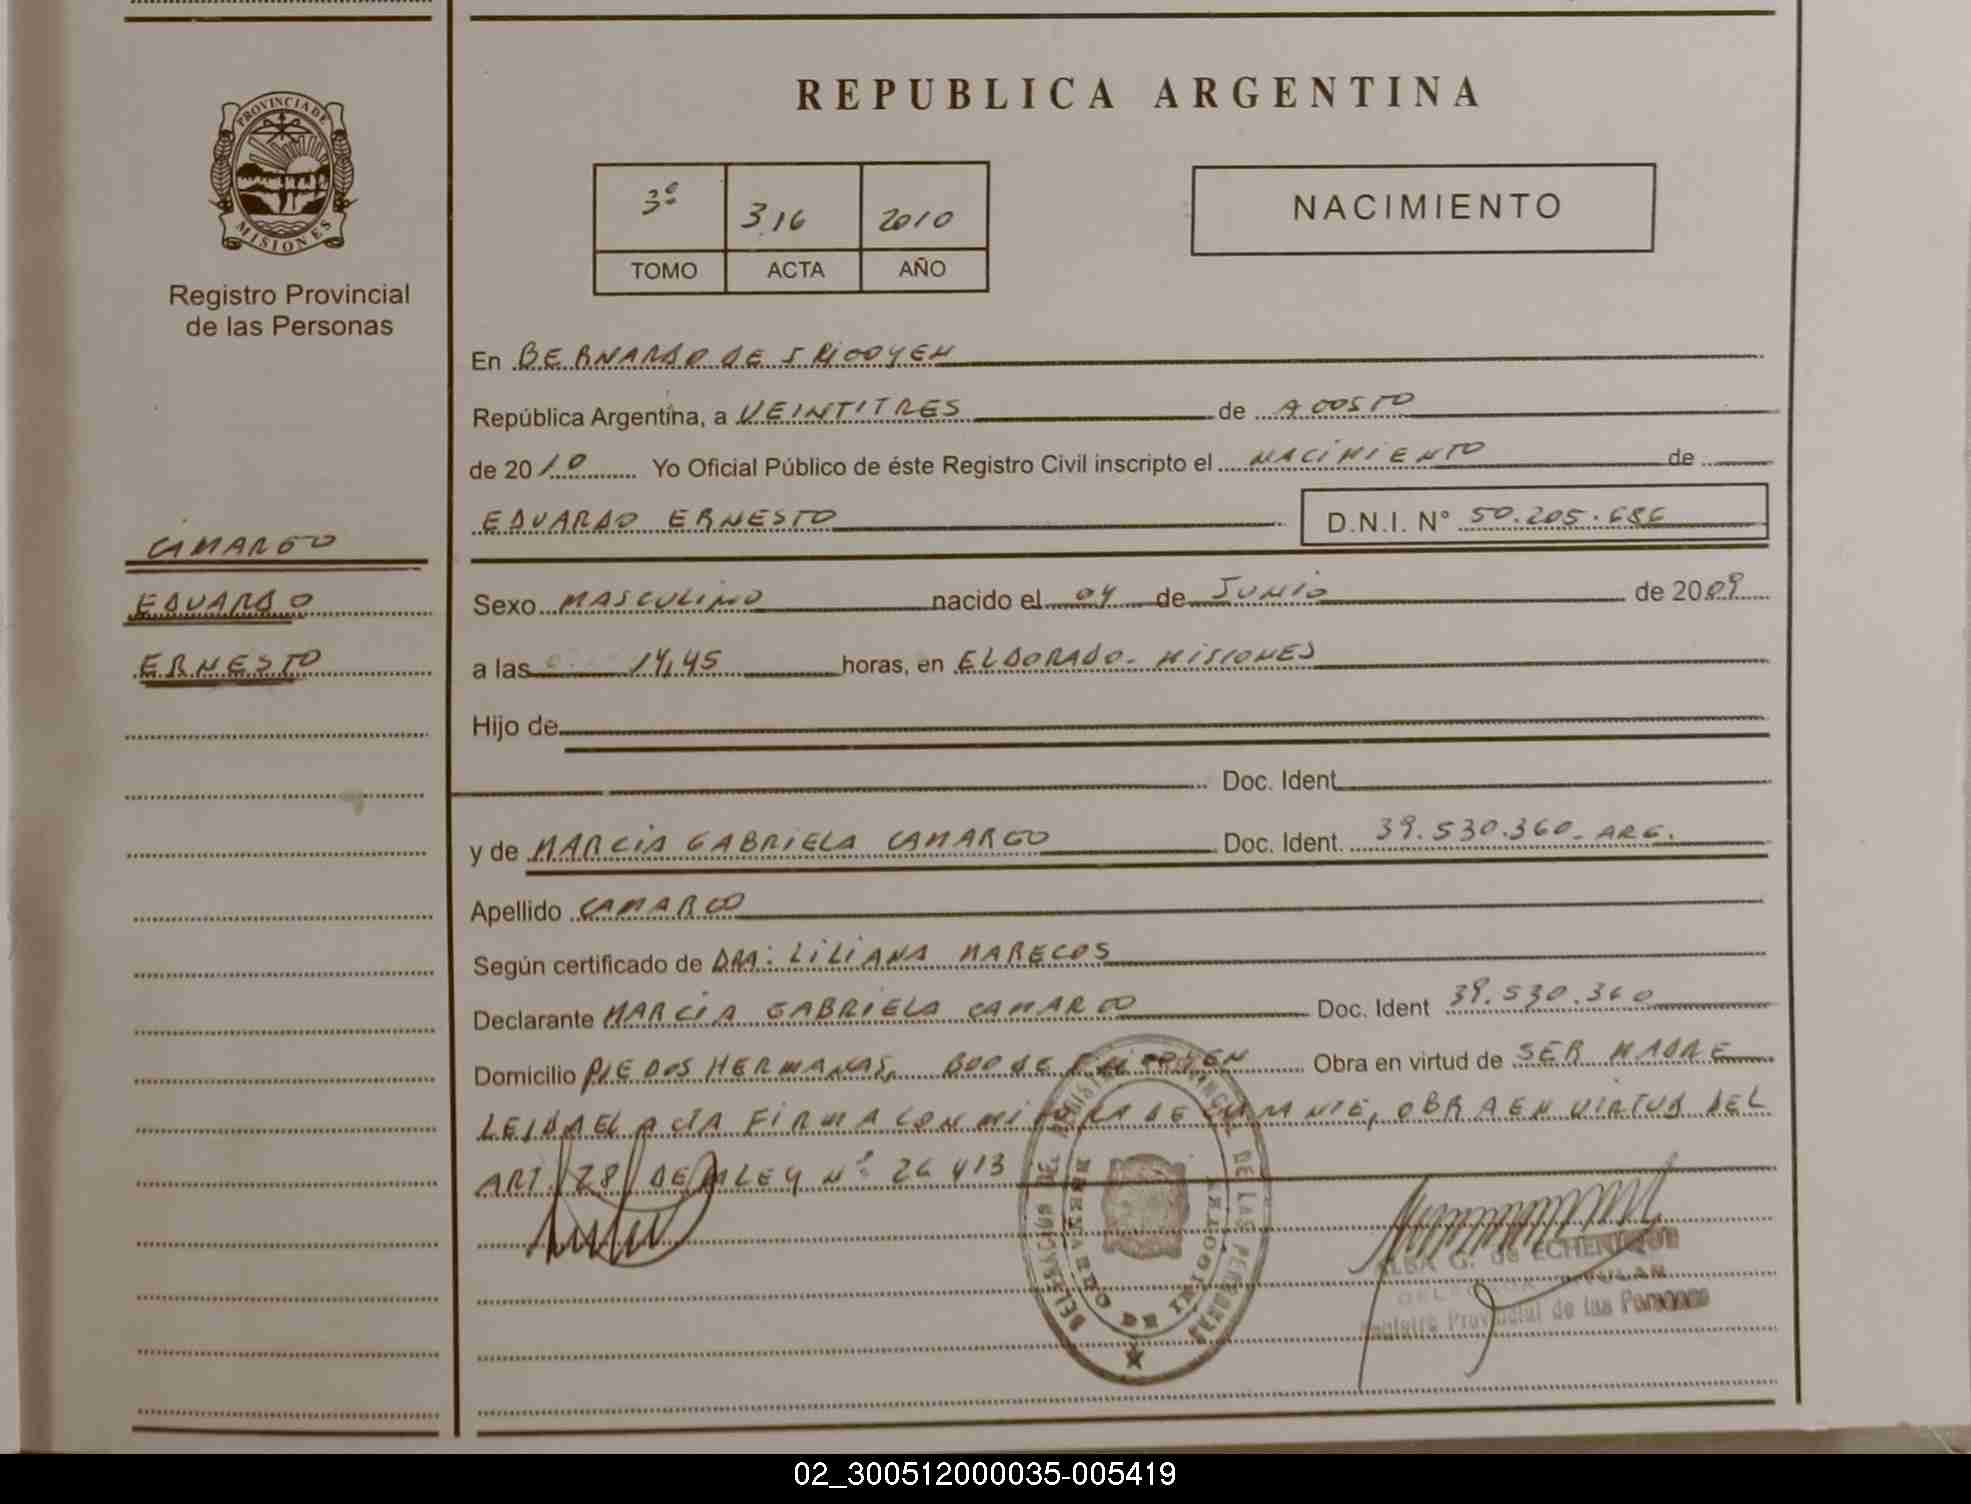 REPUBLICA ARGENTINA
PROVINCIA DE MISIONES
Registro Provincial
de las Personas
3º 316 2010
TOMO ACTA AÑO
NACIMIENTO
En BERNARDO DE IRIGOYEN
República Argentina, a VEINTITRES de AGOSTO
de 2010 Yo Oficial Público de éste Registro Civil inscripto el NACIMIENTO de
EDUARDO ERNESTO D.N.I. N° 50.205.686
CAMARGO
EDUARDO
ERNESTO
Sexo MASCULINO nacido el 04 de JUNIO de 2009
a las 14,45 horas, en ELDORADO - MISIONES
Hijo de
Doc. Ident
y de MARCIA GABRIELA CAMARGO Doc. Ident. 39.530.360 - ARG.
Apellido CAMARGO
Según certificado de DRA: LILIANA MARECOS
Declarante MARCIA GABRIELA CAMARGO Doc. Ident 39.530.360
Domicilio PJE DOS HERMANAS, BDO DE IRIGOYEN Obra en virtud de SER MADRE
LEIDA EL ACTA FIRMA CON MIGO LA DECLARANTE, OBRA EN VIRTUD DEL
ART. 28 DE LA LEY Nº 26413
BERNARDO DE IRIGOYEN
ALBA G. de ECHENIQUE
DELEGADA TITULAR
Registro Provincial de las Personas
02_300512000035-005419